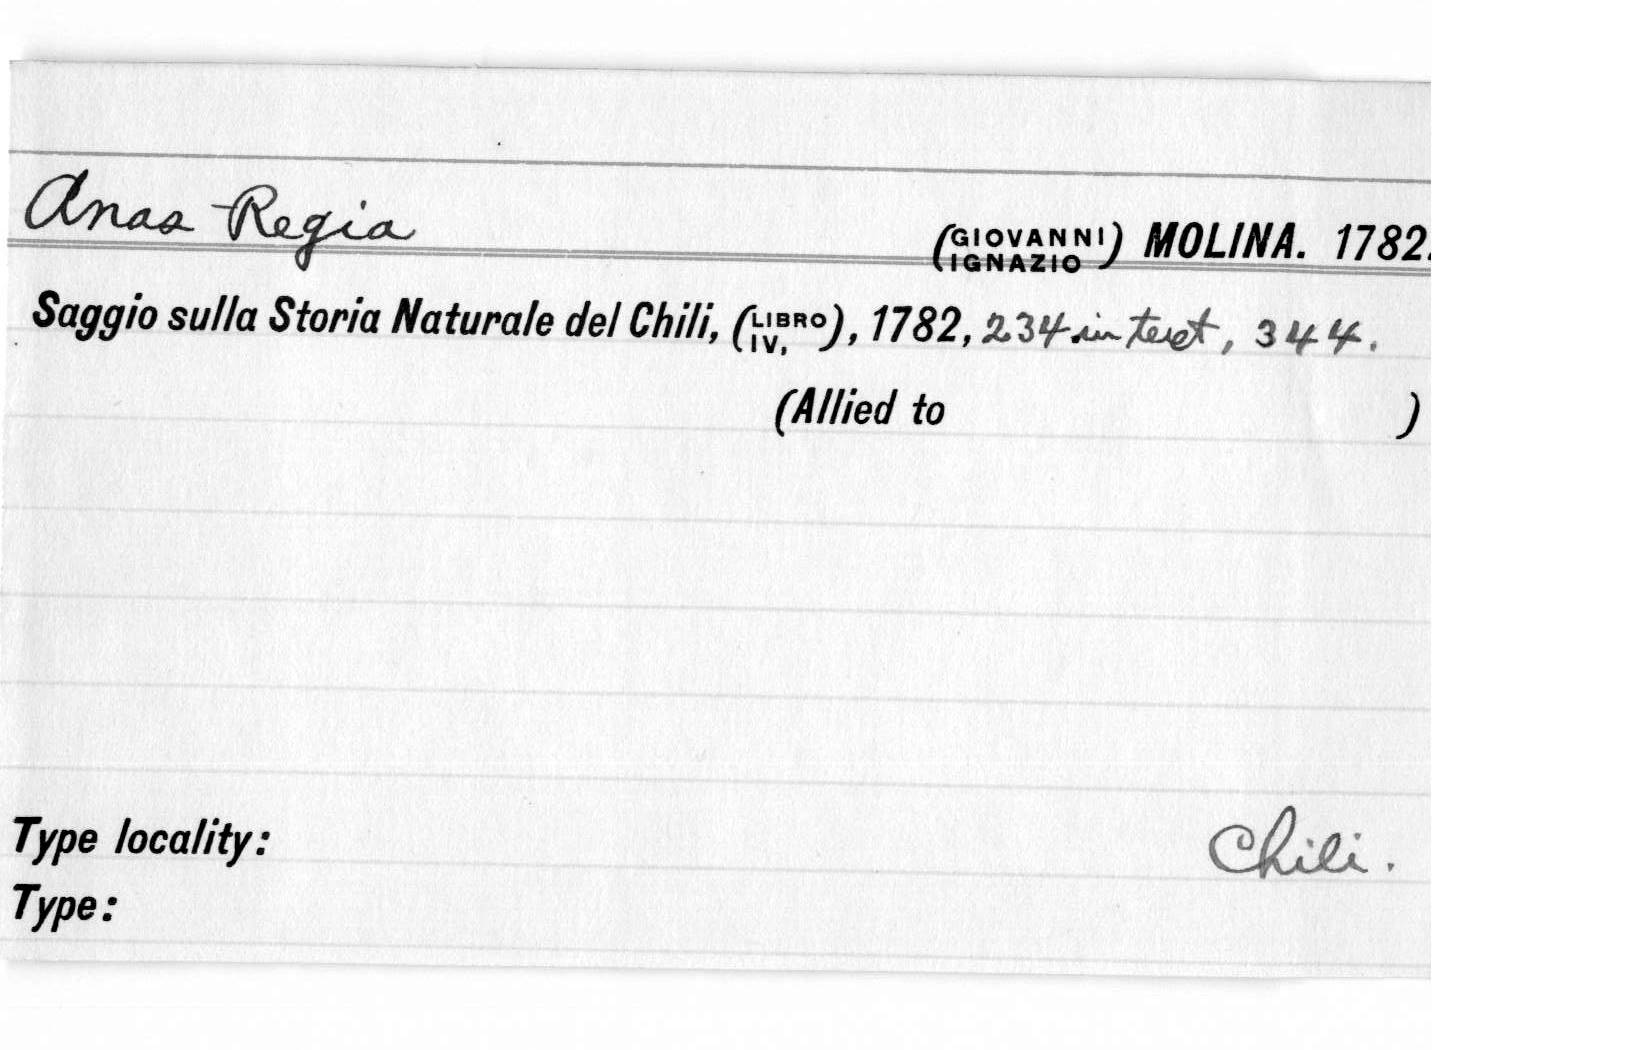 Anas Regia (GIOVANNI IGNAZIO) MOLINA. 1782.
Saggio sulla Storia Naturale del Chili, (LIBRO IV,), 1782, 234 in text, 344.
(Allied to )
Type locality: Chili.
Type: